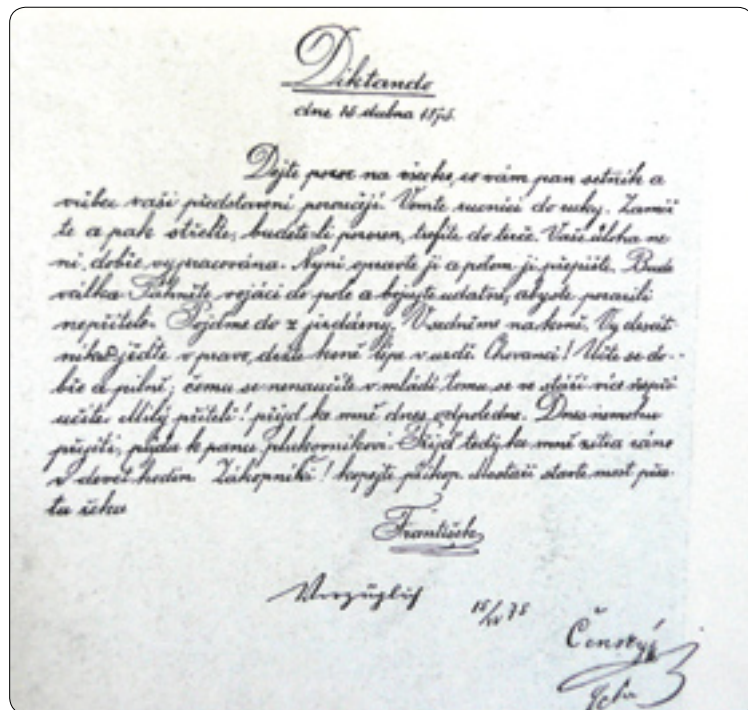 Diktando
dne 15 dubna 1875.
Dejte pozor na všecko, co vám pan setník a
vůbec vaši představení poroučejí. Vemte ručnici do ruky. Zamiř
te a pak střelte; budete-li pozoren, trefíte do terče. Vaše úloha ne
ní dobře vypracována. Nyní opravte ji a potom ji přepište. Bude
válka. Táhněte vojáci do pole a bojujte udatně, abyste porazili
nepřítele. Pojďme do z jízdárny. Vsedněme na koně. Vy desát
níku jeďte v pravo, držte koně lépe v uzdě. Chovanci! Učte se do-
bře a pilně; čemu se nenaučíte v mládí, tomu se ve stáří více nepři
učíte. Milý příteli! přijď ke mně dnes odpoledne. Dnes nemohu
přijíti, půjdu k panu plukovníkovi. Přijď tedy ke mně zítra ráno
v devět hodin. Zákopníci! kopejte příkop. Mostaři stavte most přes
tu řeku
František
Vorzüglich
15/IV 75
Čenský